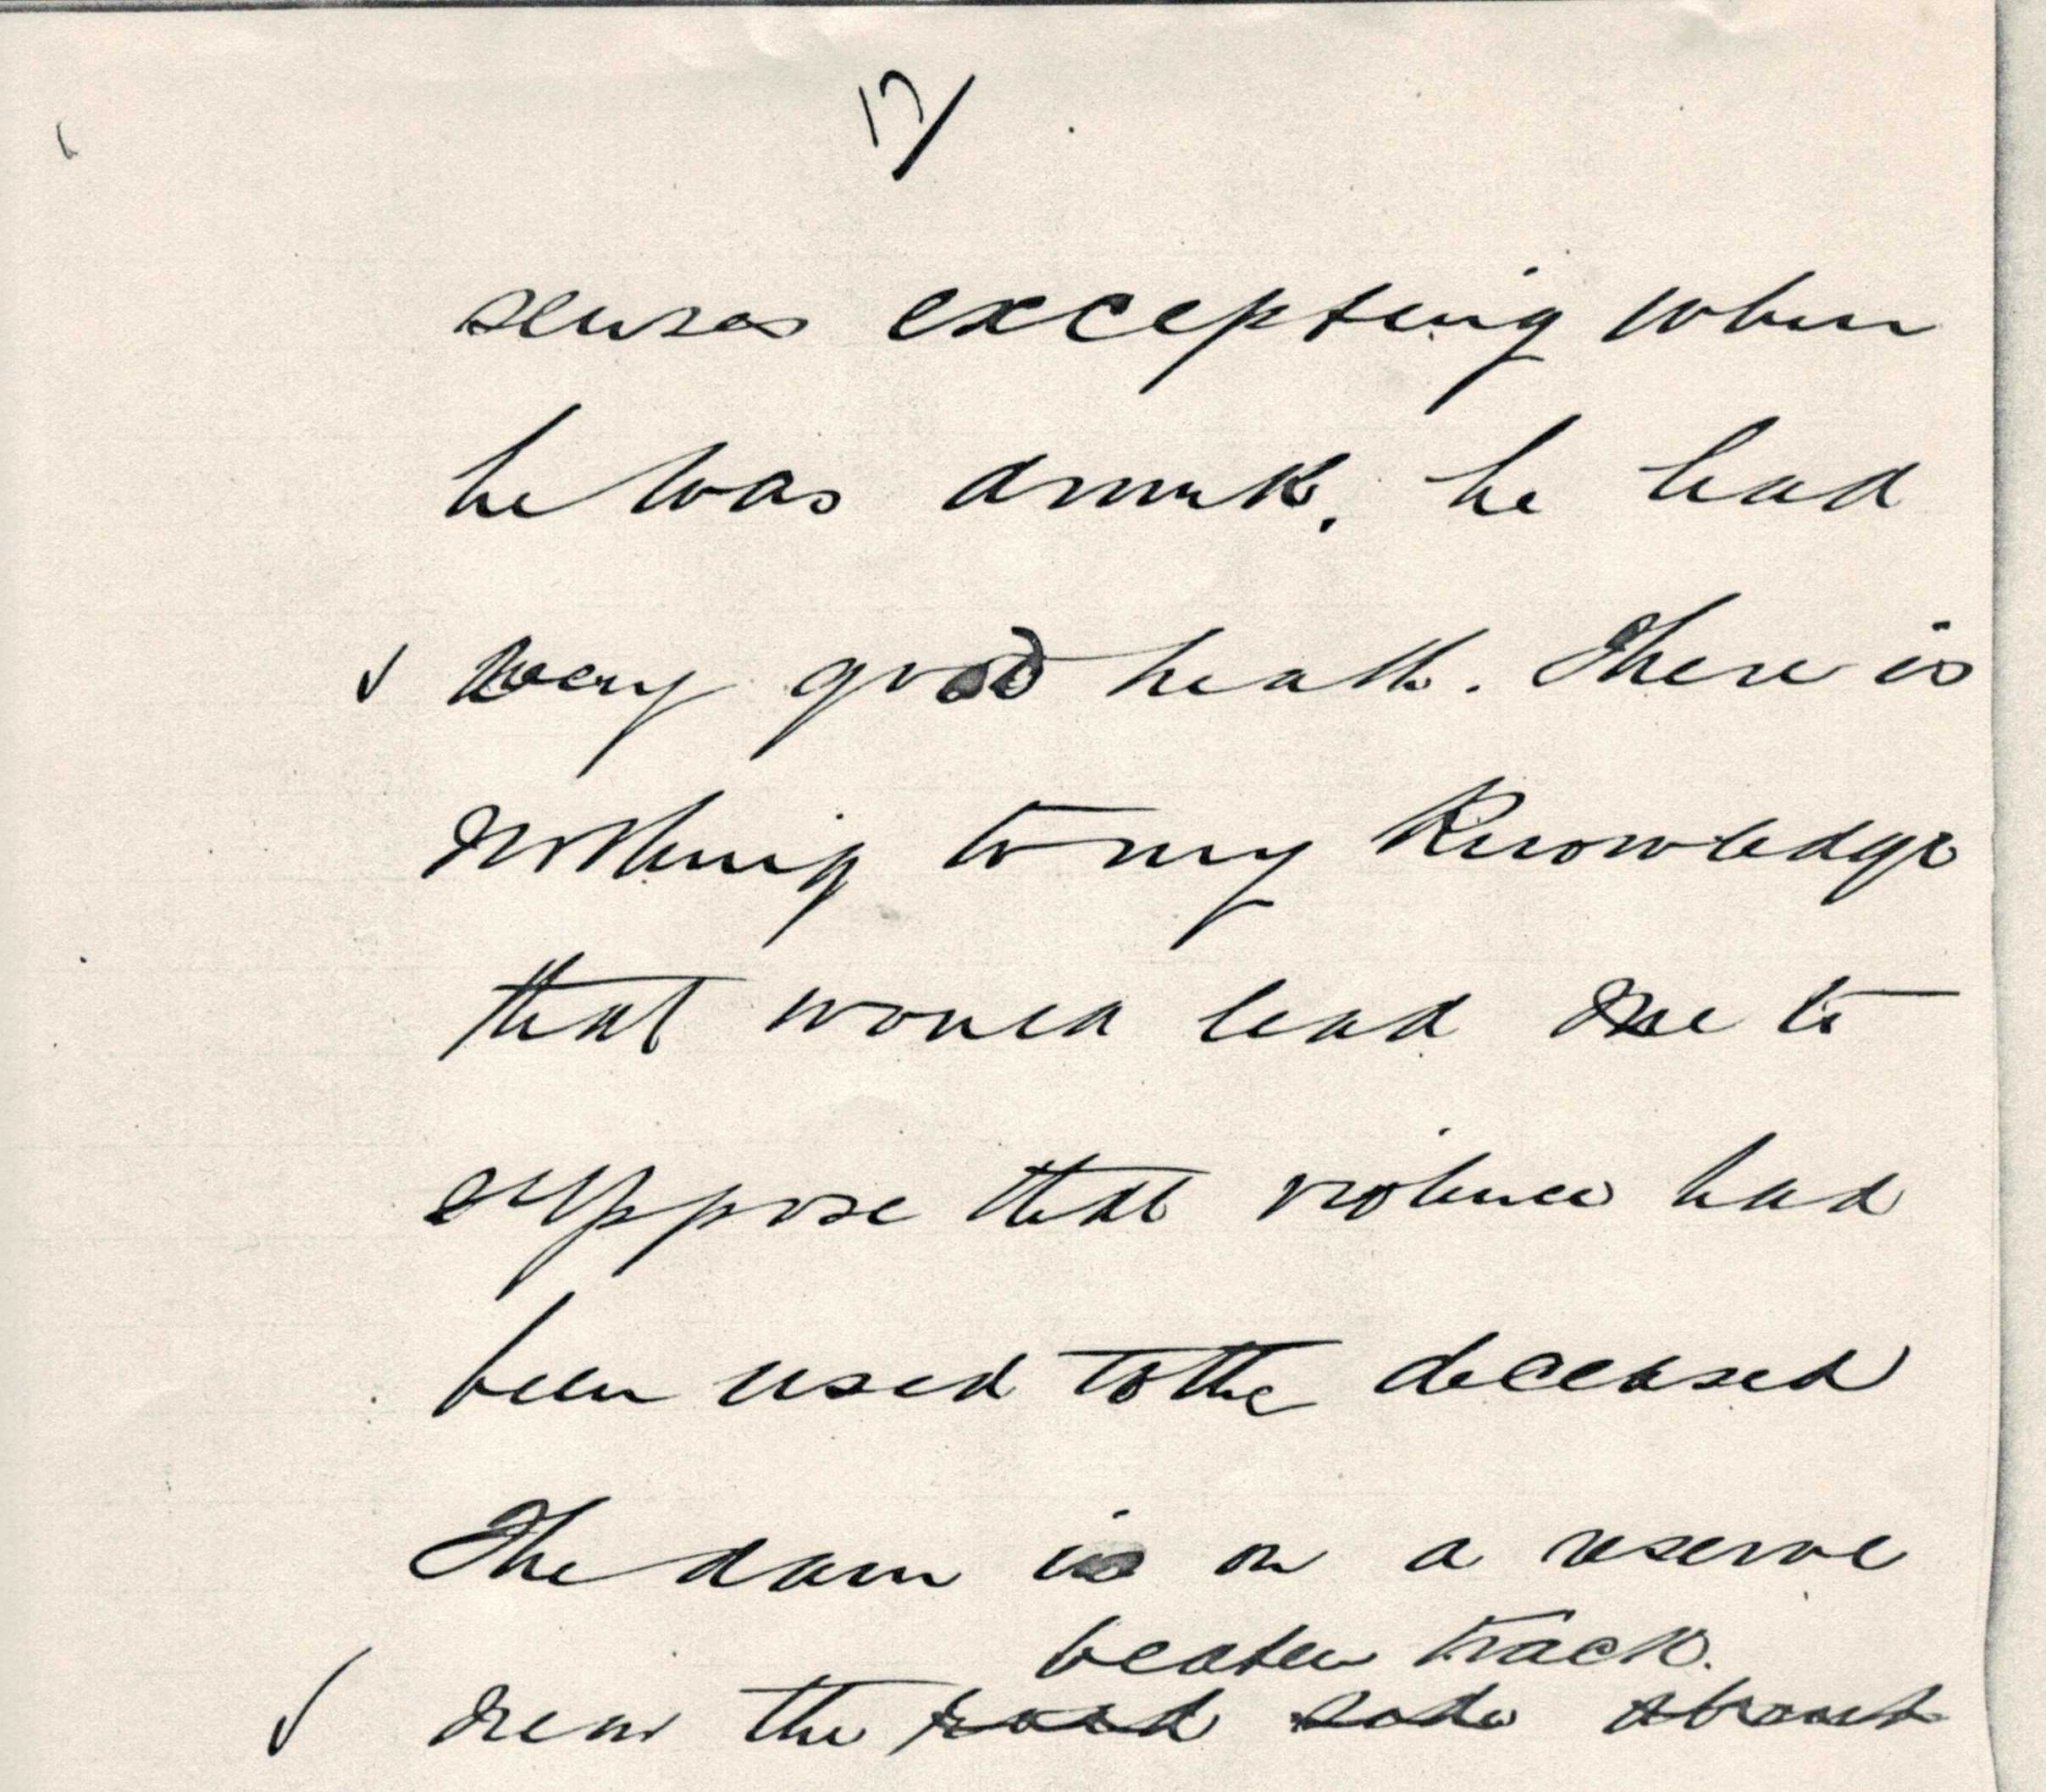 17/
senses excepting when
he was drunk. he had
very good health. There is
nothing to my Knowledge
that would lead me to
suppose that violence had
been used to the deceased
The dam is on a reserve
beaten track.
near the road side about